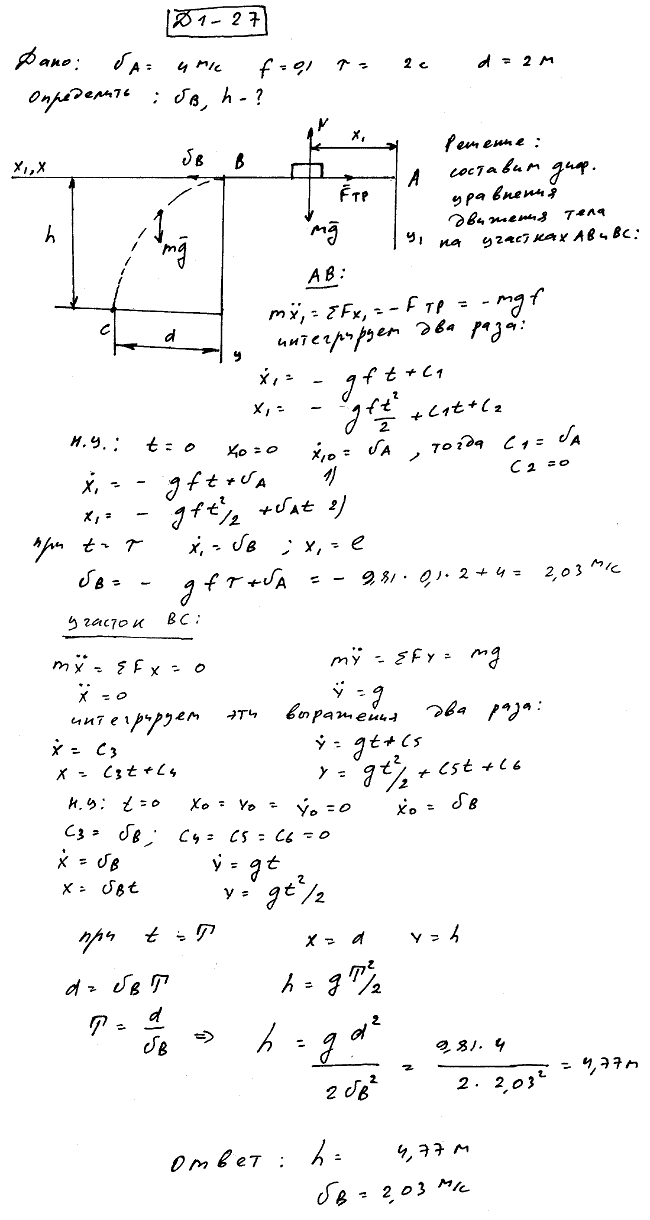 Д1-27
Дано: υA = 4 м/с f = 0,1 τ = 2с d = 2м
Определить: υB, h - ?
x1, x υB B N x1 A
F̄тр
h mḡ mḡ y1
C d y
Решение:
составим диф.
уравнения
движения тела
на участках AB и BC:
AB:
mẍ1 = ΣFx1 = -Fтр = -mgf
интегрируем два раза:
ẋ1 = - gft + C1
x1 = - gft²/2 + C1t + C2
н.у.: t = 0 x0 = 0 ẋ10 = υA, тогда C1 = υA
C2 = 0
ẋ1 = - gft + υA 1)
x1 = - gft²/2 + υAt 2)
при t = τ ẋ1 = υB ; x1 = l
υB = - gfτ + υA = - 9,81 · 0,1 · 2 + 4 = 2,03 м/с
участок BC:
mẍ = ΣFx = 0 mÿ = ΣFy = mg
ẍ = 0 ÿ = g
интегрируем эти выражения два раза:
ẋ = C3 ẏ = gt + C5
x = C3t + C4 y = gt²/2 + C5t + C6
н.у: t = 0 x0 = y0 = ẏ0 = 0 ẋ0 = υB
C3 = υB; C4 = C5 = C6 = 0
ẋ = υB ẏ = gt
x = υBt y = gt²/2
при t = T x = d y = h
d = υB T h = gT²/2
T = d/υB => h = gd²/2υB² = 9,81·4/2·2,03² = 4,77м
Ответ: h = 4,77м
υB = 2,03 м/с